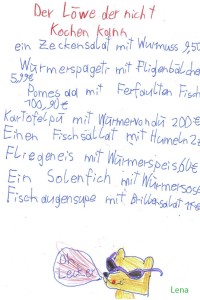 Der Löwe der nicht
Kochen kann
ein Zeckensalat mit Wurmuss 9,50
Würmerspageti mit Fligenbälchen
5,99€
Pomes da mit Ferfaulten Fisch
100,90€
Kartofelpü mit Würmervondü 200€
Einen Fischsallat mit Humeln
Fliegeneis mit Würmerspeis
Ein Solenfich mit Würmersose
Fischaugensupe mit Brillensalat
Oh
Lecker
Lena